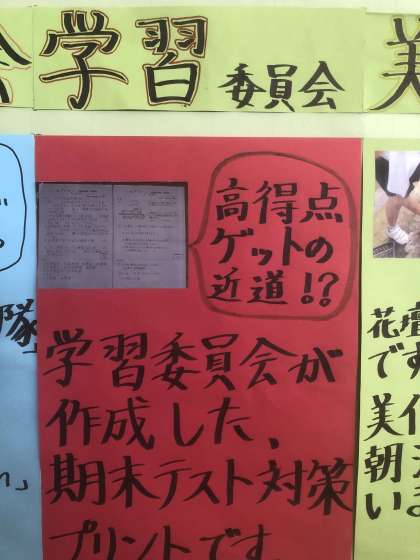 学習 委員会
美
高得点
ゲットの
近道!?
学習委員会が
作成した、
期末テスト対策
プリントです
隊」
花壇
です
美化
朝
い